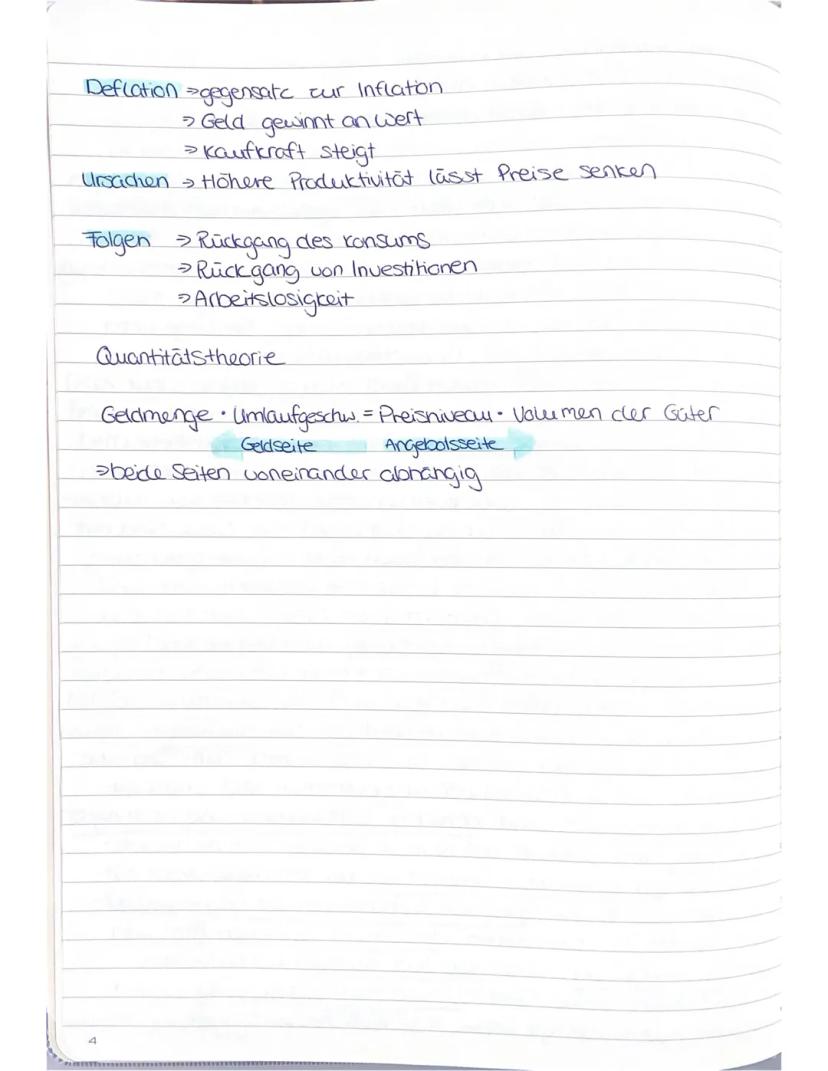 Deflation ⇒ gegensatz zur Inflation
⇒ Geld gewinnt an Wert
⇒ Kaufkraft steigt
Ursachen → Höhere Produktivität lässt Preise senken
Folgen ⇒ Rückgang des Konsums
⇒ Rückgang von Investitionen
⇒ Arbeitslosigkeit
Quantitätstheorie
Geldmenge · Umlaufgeschw. = Preisniveau · Volumen der Güter
Geldseite Angebotsseite
⇒ beide Seiten voneinander abhängig
4